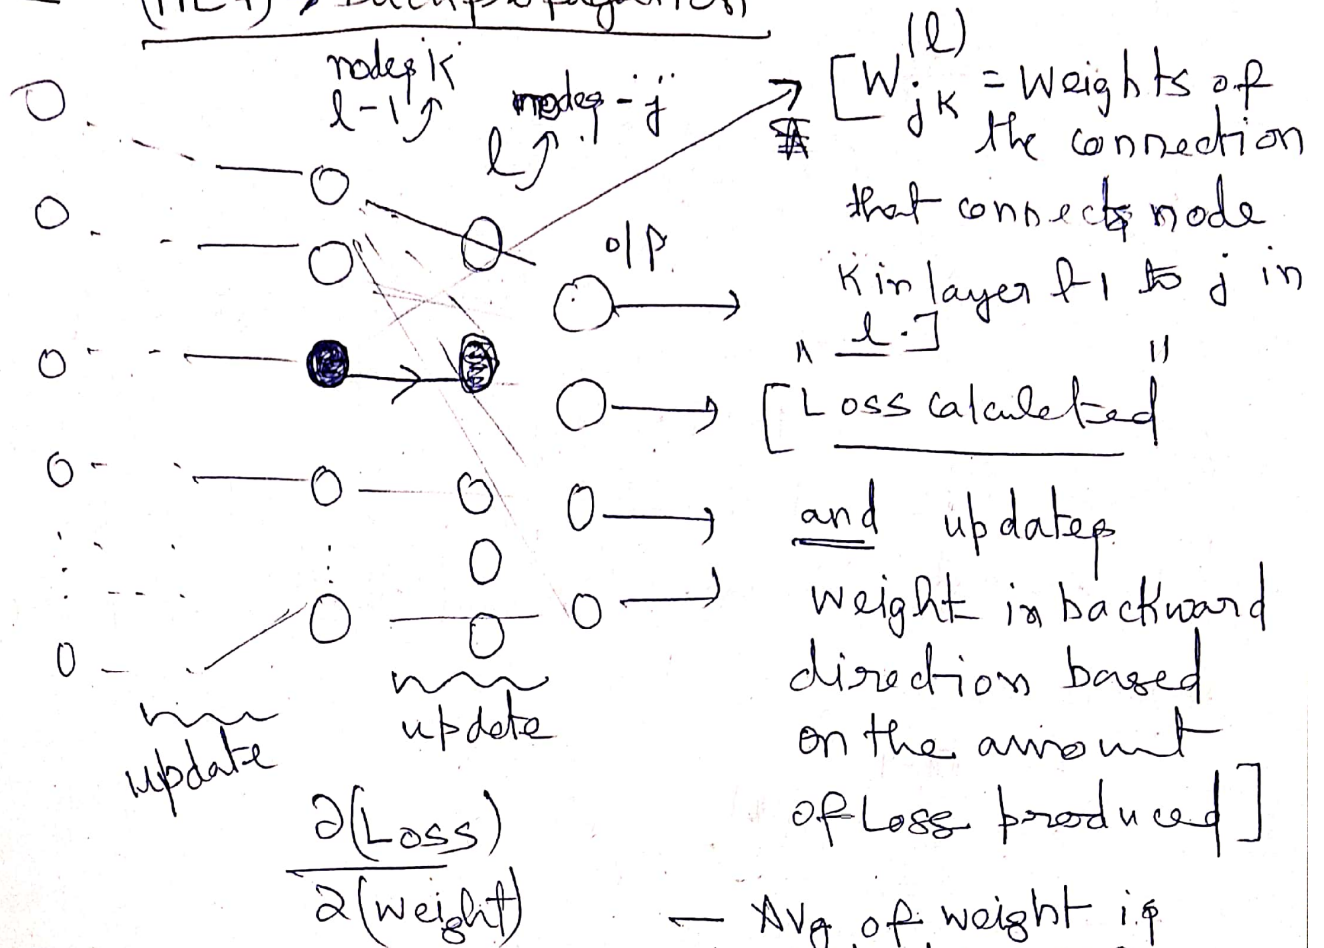 backpropagation
nodes 'k'
l-1
nodes - 'j'
l
o/p
[W_{jk}^{(l)} = Weights of
the connection
that connects node
K in layer l-1 to j in
l.]
[" Loss calculated "
and updates
weight in backward
direction based
on the amount
of Loss produced]
update
update
∂(Loss)
∂(weight)
— Avg of weight is